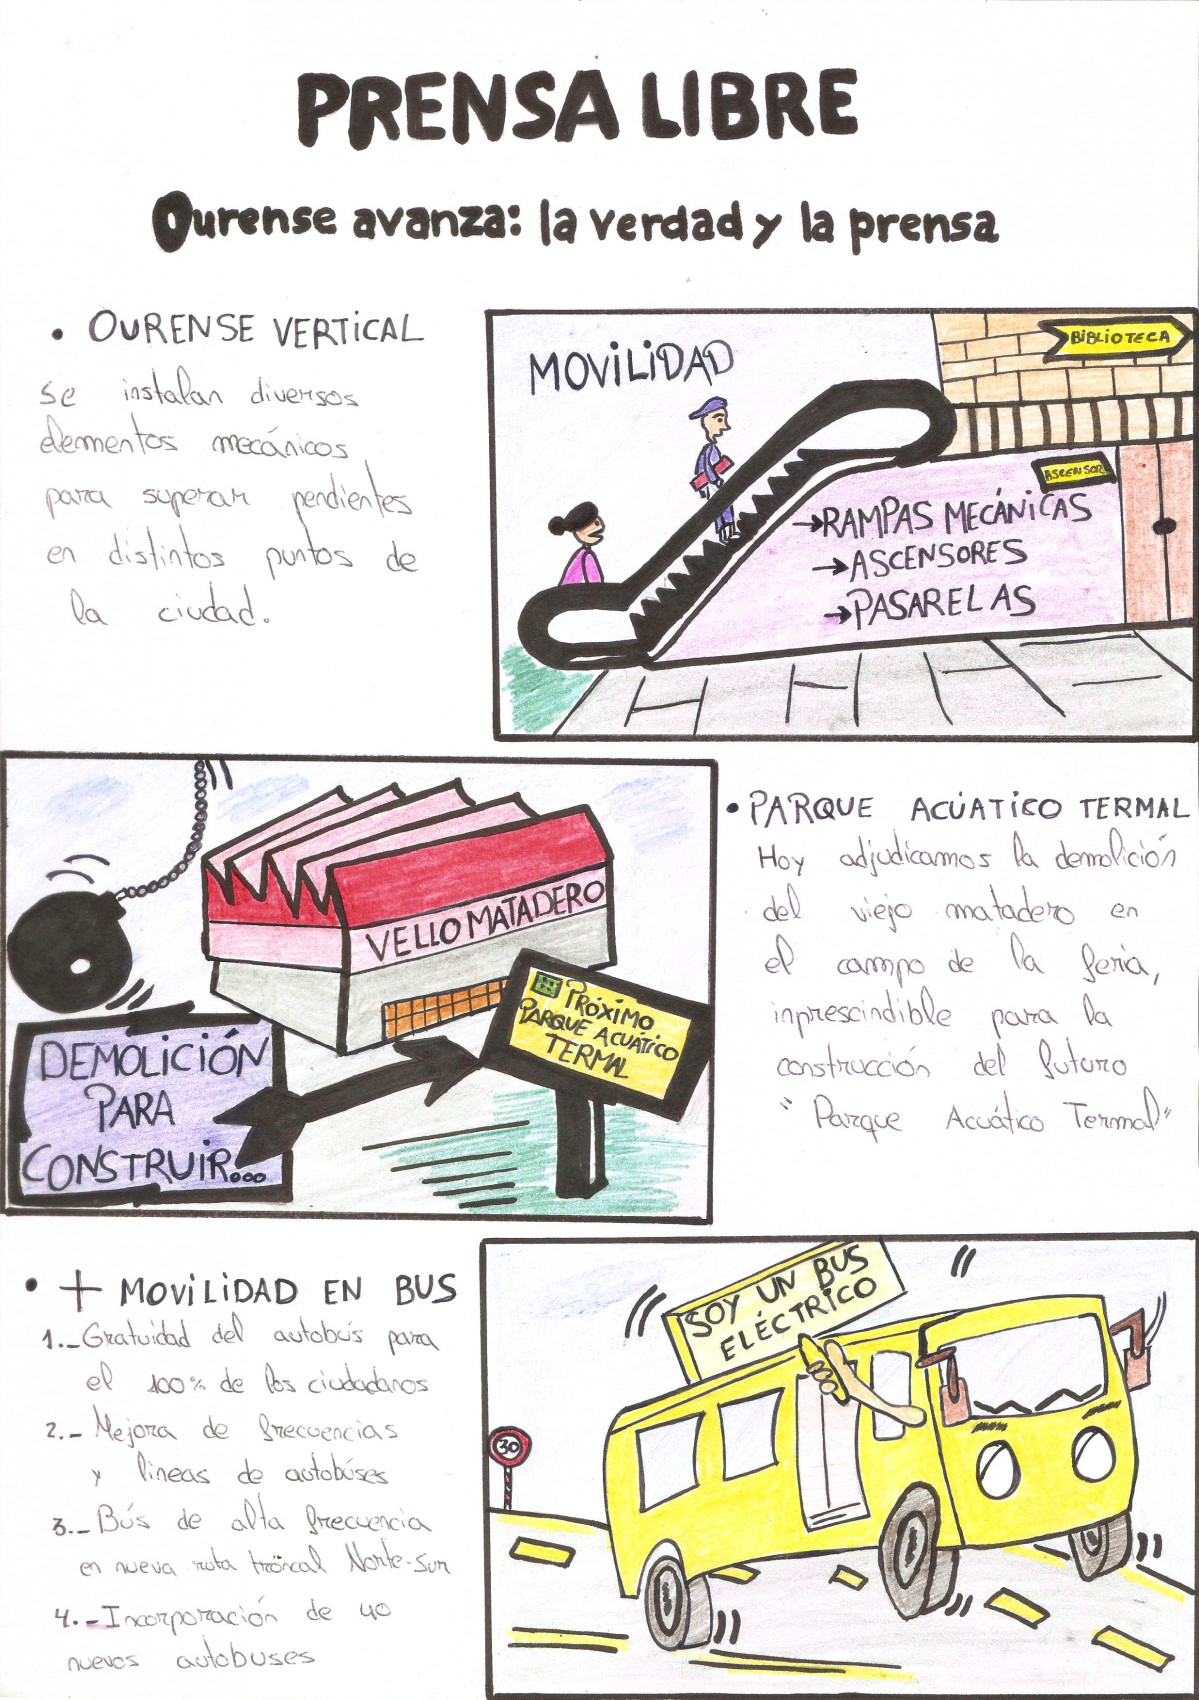 PRENSA LIBRE
Ourense avanza: la verdad y la prensa
• OURENSE VERTICAL
Se instalan diversos
elementos mecánicos
para superar pendientes
en distintos puntos de
la ciudad.
MOVILIDAD
BIBLIOTECA
ASCENSOR
→RAMPAS MECÁNICAS
→ASCENSORES
→PASARELAS
VELLO MATADERO
PRÓXIMO
PARQUE ACUÁTICO
TERMAL
DEMOLICIÓN
PARA
CONSTRUIR...
• PARQUE ACÚATICO TERMAL
Hoy adjudicamos la demolición
del viejo matadero en
el campo de la feria,
inprescindible para la
construcción del futuro
"Parque Acuático Termal"
• + MOVILIDAD EN BUS
1.- Gratuidad del autobús para
el 100% de los ciudadanos
2.- Mejora de frecuencias
y líneas de autobúses
3.- Bús de alta frecuencia
en nueva ruta tróncal Norte-Sur
4.- Incorporación de 40
nuevos autobuses
SOY UN BUS
ELÉCTRICO
30